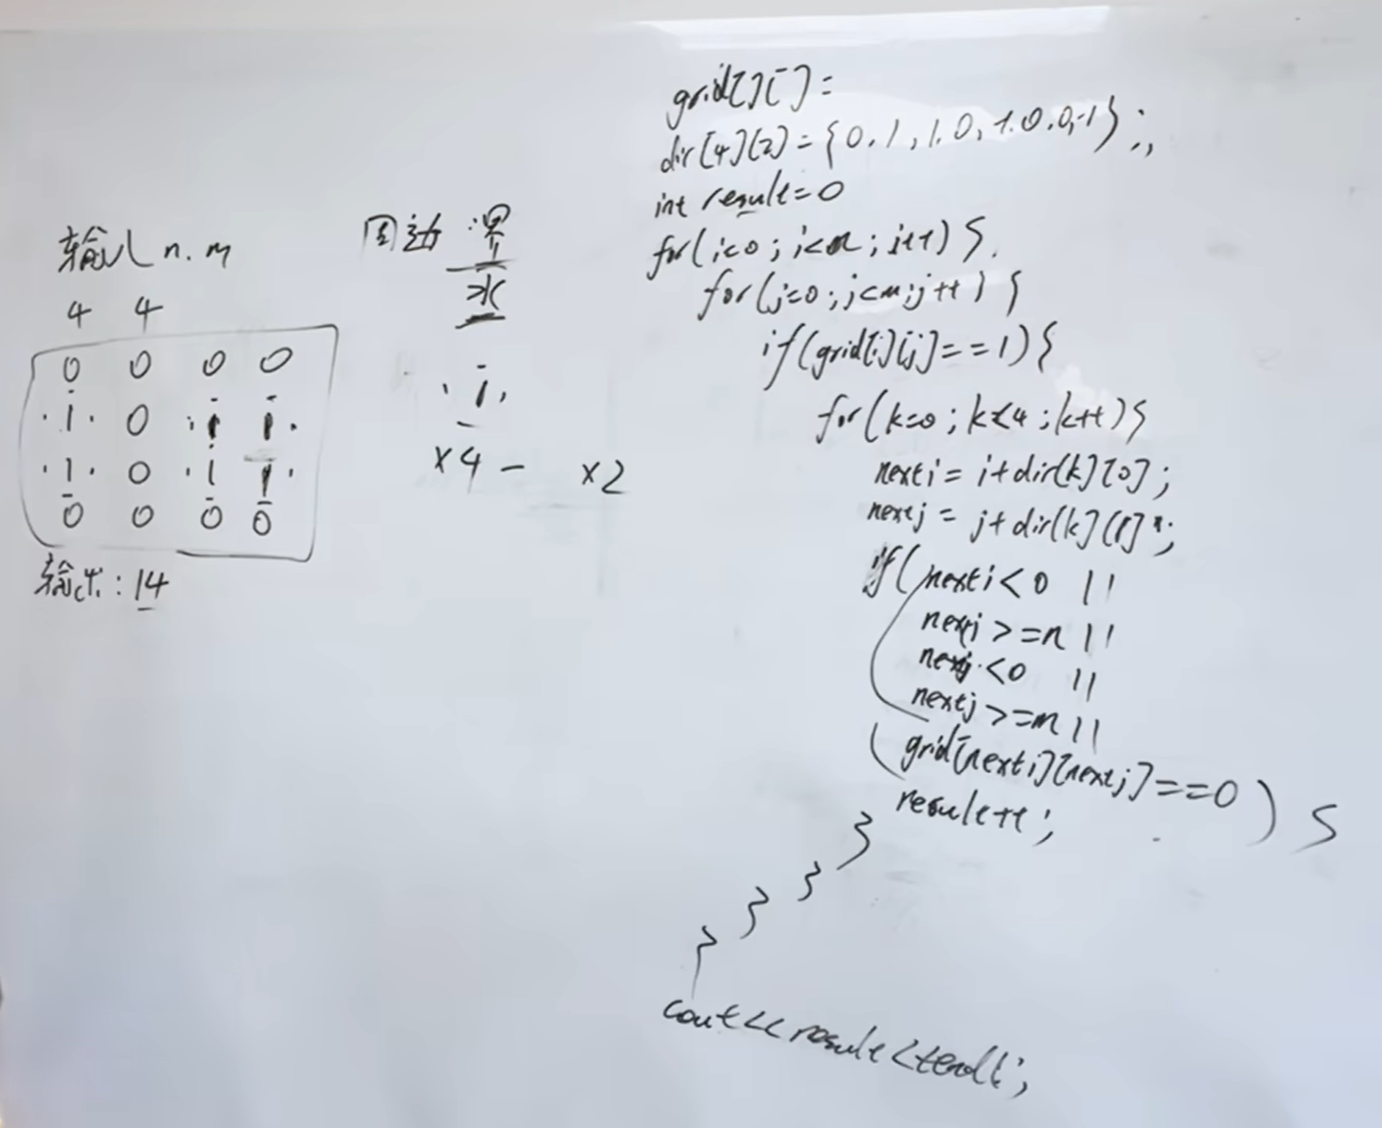 输入 n. m
4 4
0 0 0 0
1 0 1 1
1 0 1 1
0 0 0 0
输出: 14
周边: 界
水
1
×4 - ×2
grid[][] =
dir[4][2] = {0, 1, 1, 0, -1, 0, 0, -1};
int result=0
for(i=0; i<n; i++) {
for(j=0; j<m; j++) {
if(grid[i][j]==1){
for(k=0; k<4; k++){
nexti = i+dir[k][0];
nextj = j+dir[k][1];
if(nexti<0 ||
nexti >=n ||
nextj <0 ||
nextj >=m ||
grid[nexti][nextj]==0) {
result++;
}
}
}
}
cout<<result<<endl;